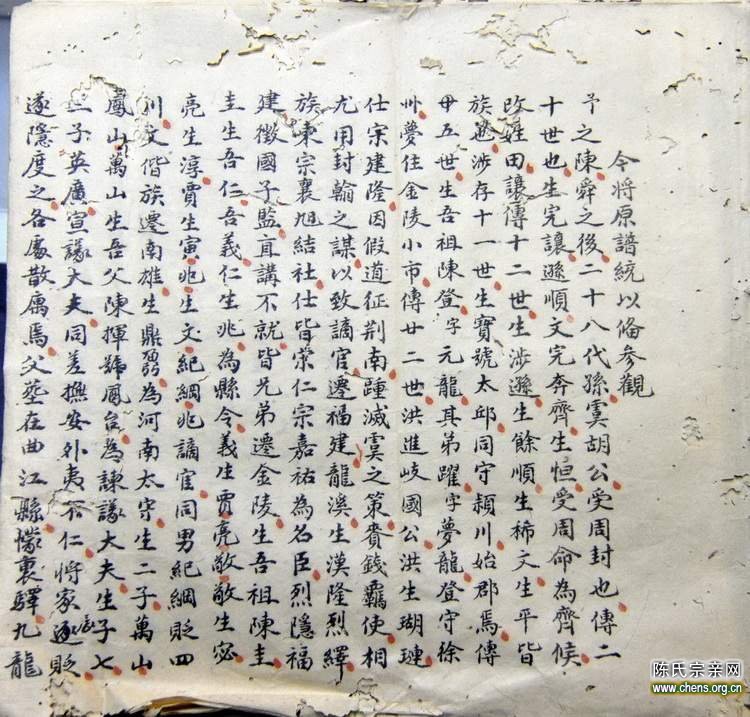 今將原譜統以俻參觀
予之陳舜之後二十八代孫虞胡公受周封也傳二
十世也生完讓遜順文完奔齊生恒受周命為齊侯
改姓田讓傳十二世生涉遜生餘順生稀文生平皆
族也涉存十一世生寔號太邱同守頴川始郡焉傳
毌五世生吾祖陳登字元龍其弟躍字夢龍登守徐
州夢住金陵小市傳廿二世洪進岐國公洪生瑚璉
仕宗建隆因假道征荆南踵滅虞之策賚錢覊使相
尤用封翰之謀以致謫官遷福建龍溪生漢隆烈繹
族東宗襄旭結社仕皆荣仁宗嘉祐為名臣烈隱福
建徴國子監直講不就皆兄弟遷金陵生吾祖陳圭
圭生吾仁吾義仁生兆為縣令義生賈亮敬敬生宓
亮生淳賈生寅兆生文紀綱兆謫官同男紀綱貶四
川文偕族遷南雄生鼎鼐為河南太守生二子萬山
鳳山萬山生吾父陳揮號國台為諫議大夫生子七
三子英廣宣議大夫同差撫安外夷不仁將家逐貶
遂隱度之各處散属焉父塟在曲江縣懞裏驛九龍
陈氏宗亲网
www.chens.org.cn